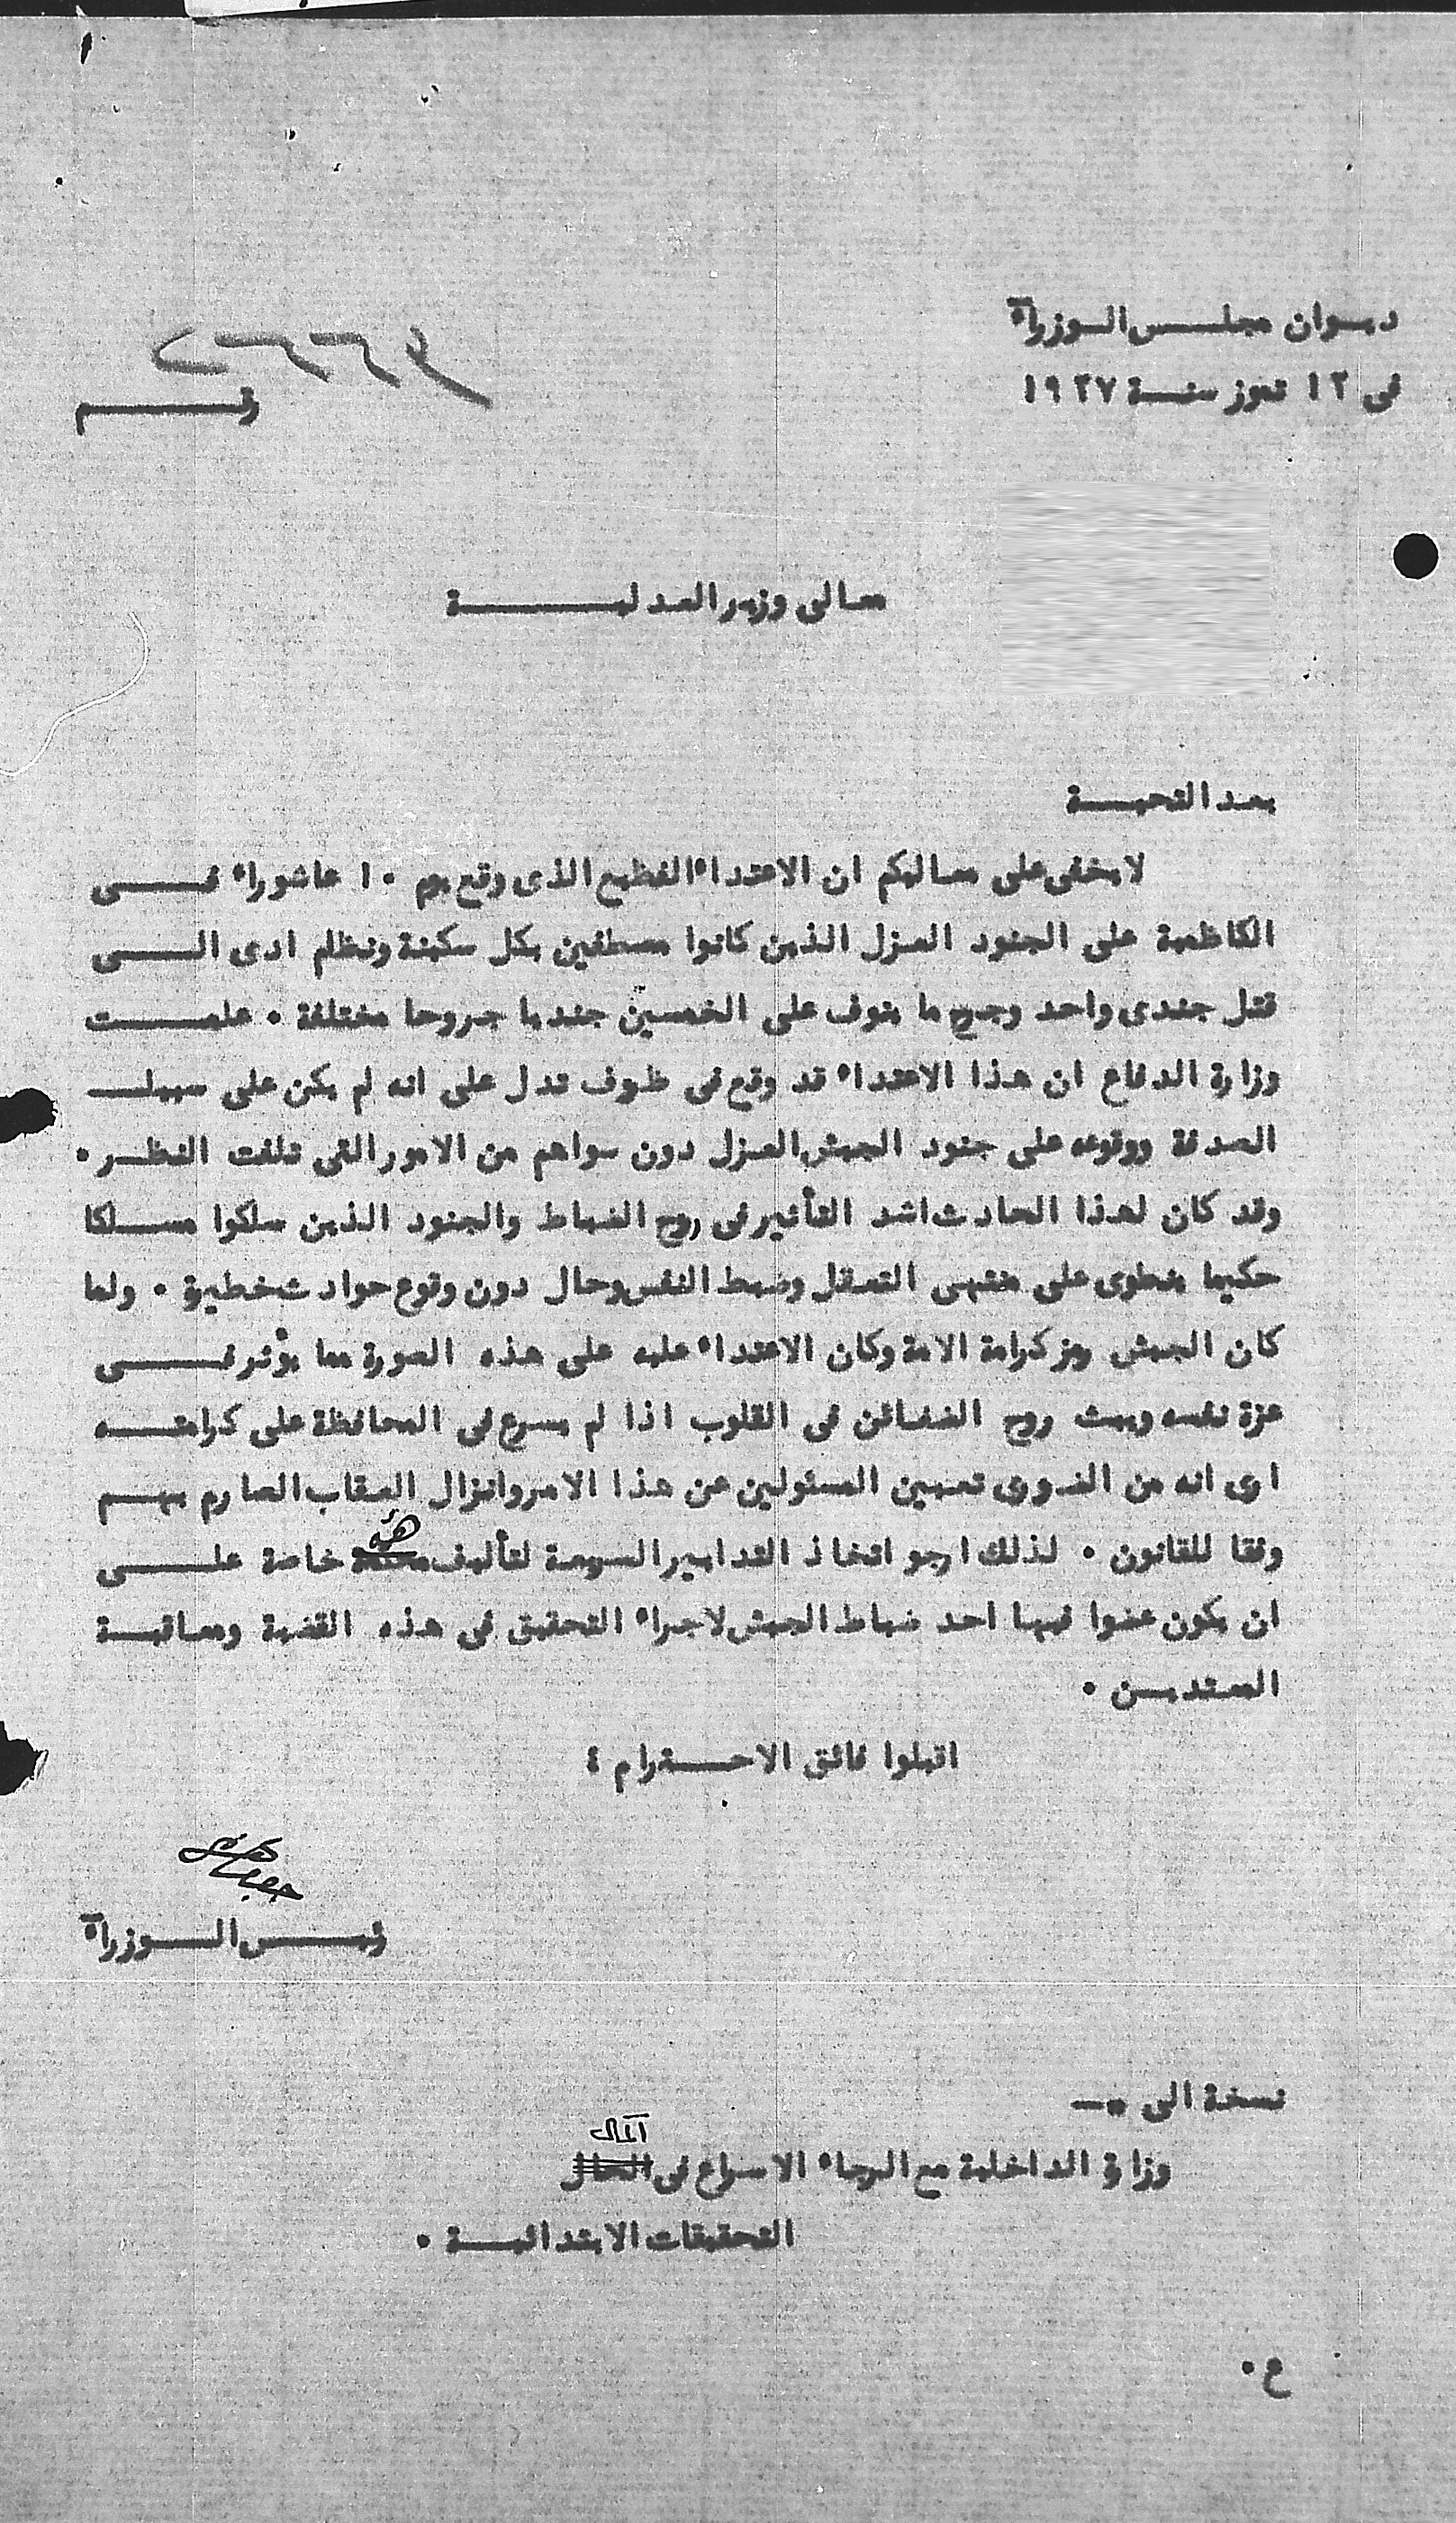 ديوان مجلس الوزراء
في ١٢ تموز سنة ١٩٢٧
رقم
معالي وزير العدلية
بعد التحية
لا يخفى على معاليكم ان الاعتداء الفظيع الذى وقع يوم ١٠ عاشوراء في
الكاظمية على الجنود العزل الذين كانوا مصطفين بكل سكينة ونظام ادى الى
قتل جندى واحد وجرح ما ينوف على الخمسين جنديا جروحا مختلفة ٠ علمت
وزارة الدفاع ان هذا الاعتداء قد وقع في ظروف تدل على انه لم يكن على سبيل
الصدفة ووقوعه على جنود الجيش العزل دون سواهم من الامور التي تلفت النظر ٠
وقد كان لهذا الحادث اشد التأثير في روح الضباط والجنود الذين سلكوا مسلكا
حكيما ينطوى على منتهى التعقل وضبط النفس وحال دون وقوع حوادث خطيرة ٠ ولما
كان الجيش رمز كرامة الامة وكان الاعتداء عليه على هذه الصورة مما يؤثر في
عزة نفسه ويبث روح الضغائن في القلوب اذا لم يسرع في المحافظة على كرامته
ارى انه من الضرورى تعيين المسئولين عن هذا الامر وانزال العقاب الصارم بهم
وفقا للقانون ٠ لذلك ارجو اتخاذ التدابير السريعة لتأليف هيئة خاصة على
ان يكون عضوا فيها احد ضباط الجيش لاجراء التحقيق في هذه القضية ومعاقبة
المعتدين ٠
اقبلوا فائق الاحترام ؛
رئيس الوزراء
نسخة الى ٠—
وزارة الداخلية مع الرجاء الاسراع في اكمال
التحقيقات الابتدائية ٠
ع ٠